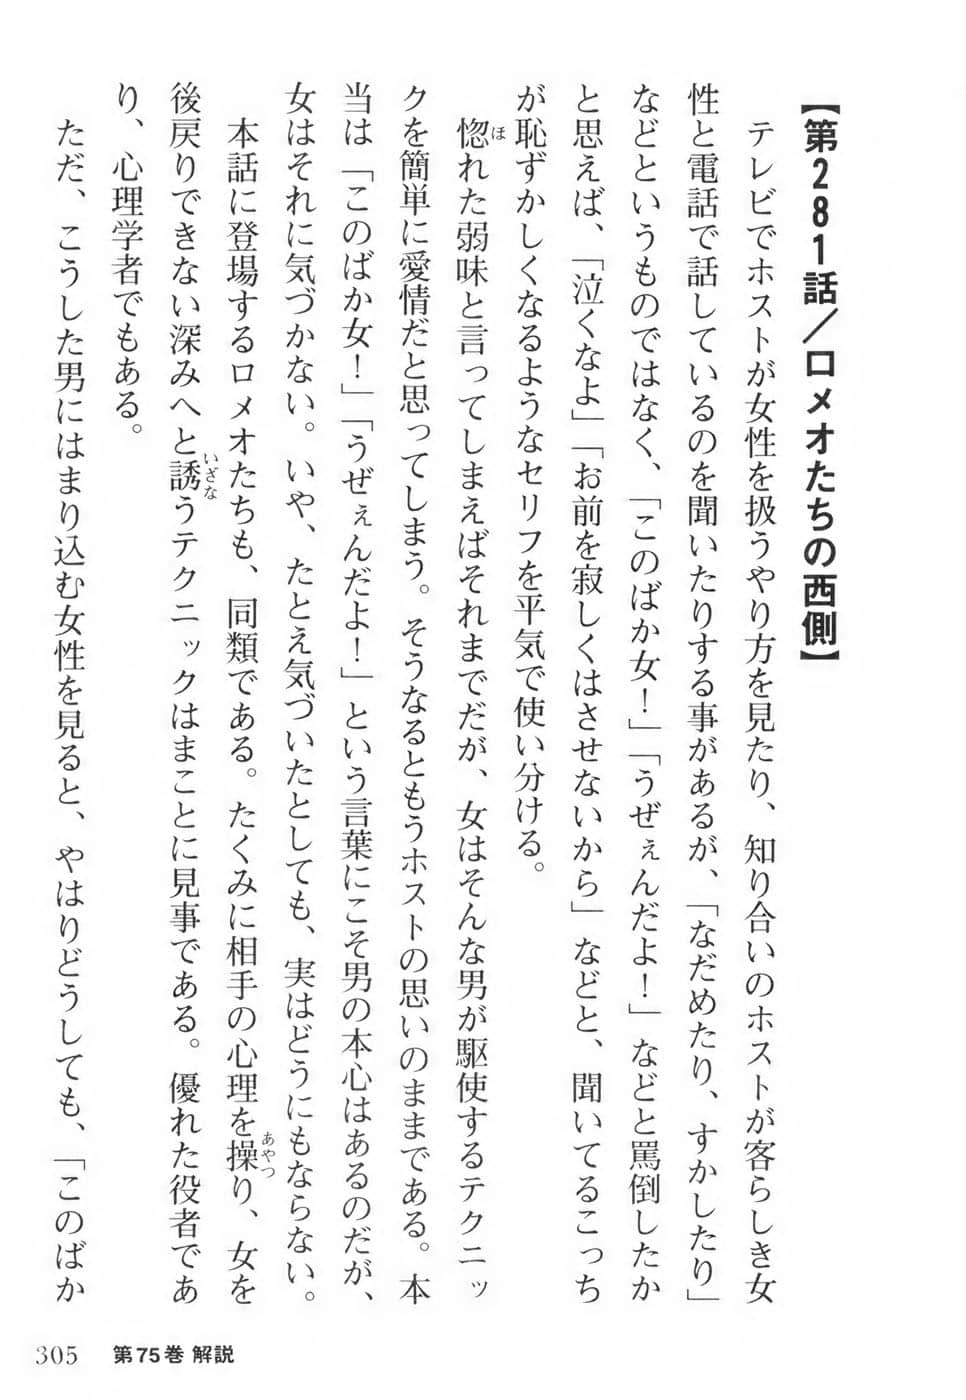 【第281話/ロメオたちの西側】
テレビでホストが女性を扱うやり方を見たり、知り合いのホストが客らしき女
性と電話で話しているのを聞いたりする事があるが、「なだめたり、すかしたり」
などというものではなく、「このばか女!」「うぜぇんだよ!」などと罵倒したか
と思えば、「泣くなよ」「お前を寂しくはさせないから」などと、聞いてるこっち
が恥ずかしくなるようなセリフを平気で使い分ける。
惚れた弱味と言ってしまえばそれまでだが、女はそんな男が駆使するテクニッ
クを簡単に愛情だと思ってしまう。そうなるともうホストの思いのままである。本
当は「このばか女!」「うぜぇんだよ!」という言葉にこそ男の本心はあるのだが、
女はそれに気づかない。いや、たとえ気づいたとしても、実はどうにもならない。
本話に登場するロメオたちも、同類である。たくみに相手の心理を操り、女を
後戻りできない深みへと誘うテクニックはまことに見事である。優れた役者であ
り、心理学者でもある。
ただ、こうした男にはまり込む女性を見ると、やはりどうしても、「このばか
ほ
いざな
あやつ
305 第75巻 解説